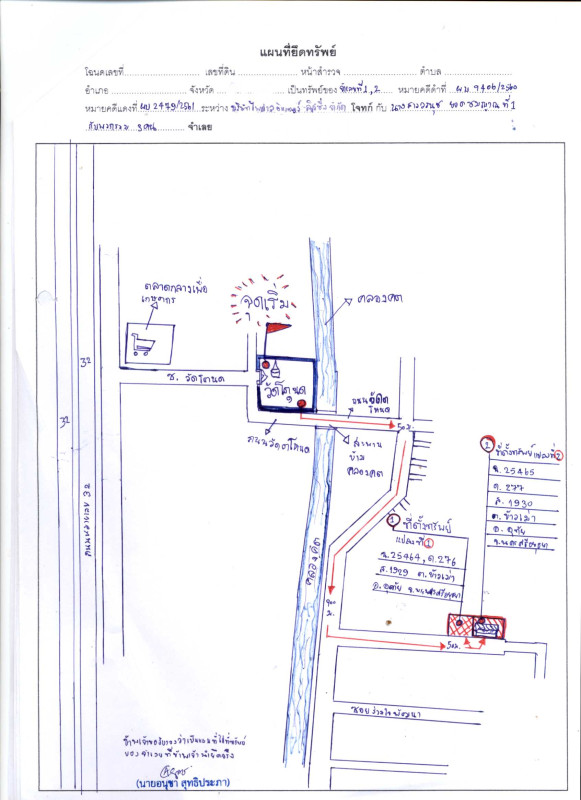 แผนที่ยึดทรัพย์
โฉนดเลขที่ เลขที่ดิน หน้าสำรวจ ตำบล
อำเภอ จังหวัด เป็นทรัพย์ของ จำเลยที่ 1, 2 หมายคดีดำที่ ผบ 9406/2560
หมายคดีแดงที่ ผบ 2479/2561 ระหว่าง โจทก์ กับ นางสาว ที่ 1
กับพวกรวม 3 คน จำเลย
ตลาดกลางเพื่อ
เกษตรกร
จุดเริ่ม
คลองคต
32
ซ. วัดโตนด
วัดโตนด
ถนนวัดโตนด
50 ม.
32
ถนนวัดโตนด
สะพาน
ข้าม
คลองคต
2
ที่ตั้งทรัพย์แปลงที่ 2
ฉ. 25465
ด. 277
ส. 1930
ต. ข้าวเม่า
อ. อุทัย
จ. พระนครศรีอยุธยา
ถนนสายเอเซีย 32
1
ที่ตั้งทรัพย์
แปลงที่ 1
ฉ. 25464, ด. 276
ส. 1929 ต. ข้าวเม่า
อ. อุทัย จ. พระนครศรีอยุธยา
คลองคต
ม.
50 ม.
ซอยร่วมใจพัฒนา
(นายอนุชา สุทธิประภา)